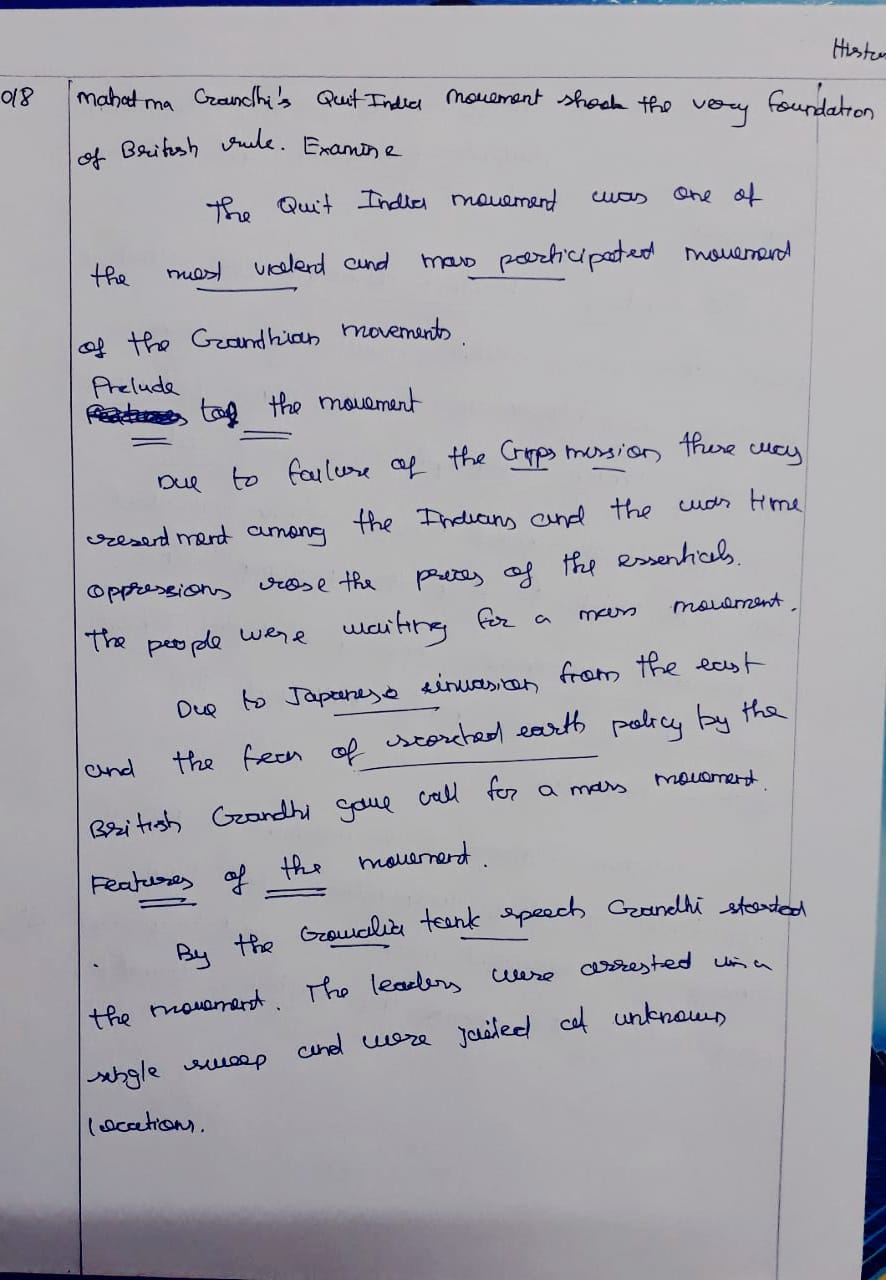 Histo
018
Mahatma Gandhi's Quit India Movement shook the very foundation
of British rule. Examine
The Quit India movement was one of
the most violent and mass participated movement
of the Gandhian movements.
Prelude
to the movement
Due to failure of the Cripps mission there was
resentment among the Indians and the war time
oppressions rose the prices of the essentials.
The people were waiting for a mass movement.
Due to Japanese invasion from the east
and the fear of scorched earth policy by the
British Gandhi gave call for a mass movement.
Features of the movement.
By the Gowalia tank speech Gandhi started
the movement. The leaders were arrested in a
single sweep and were jailed at unknown
locations.